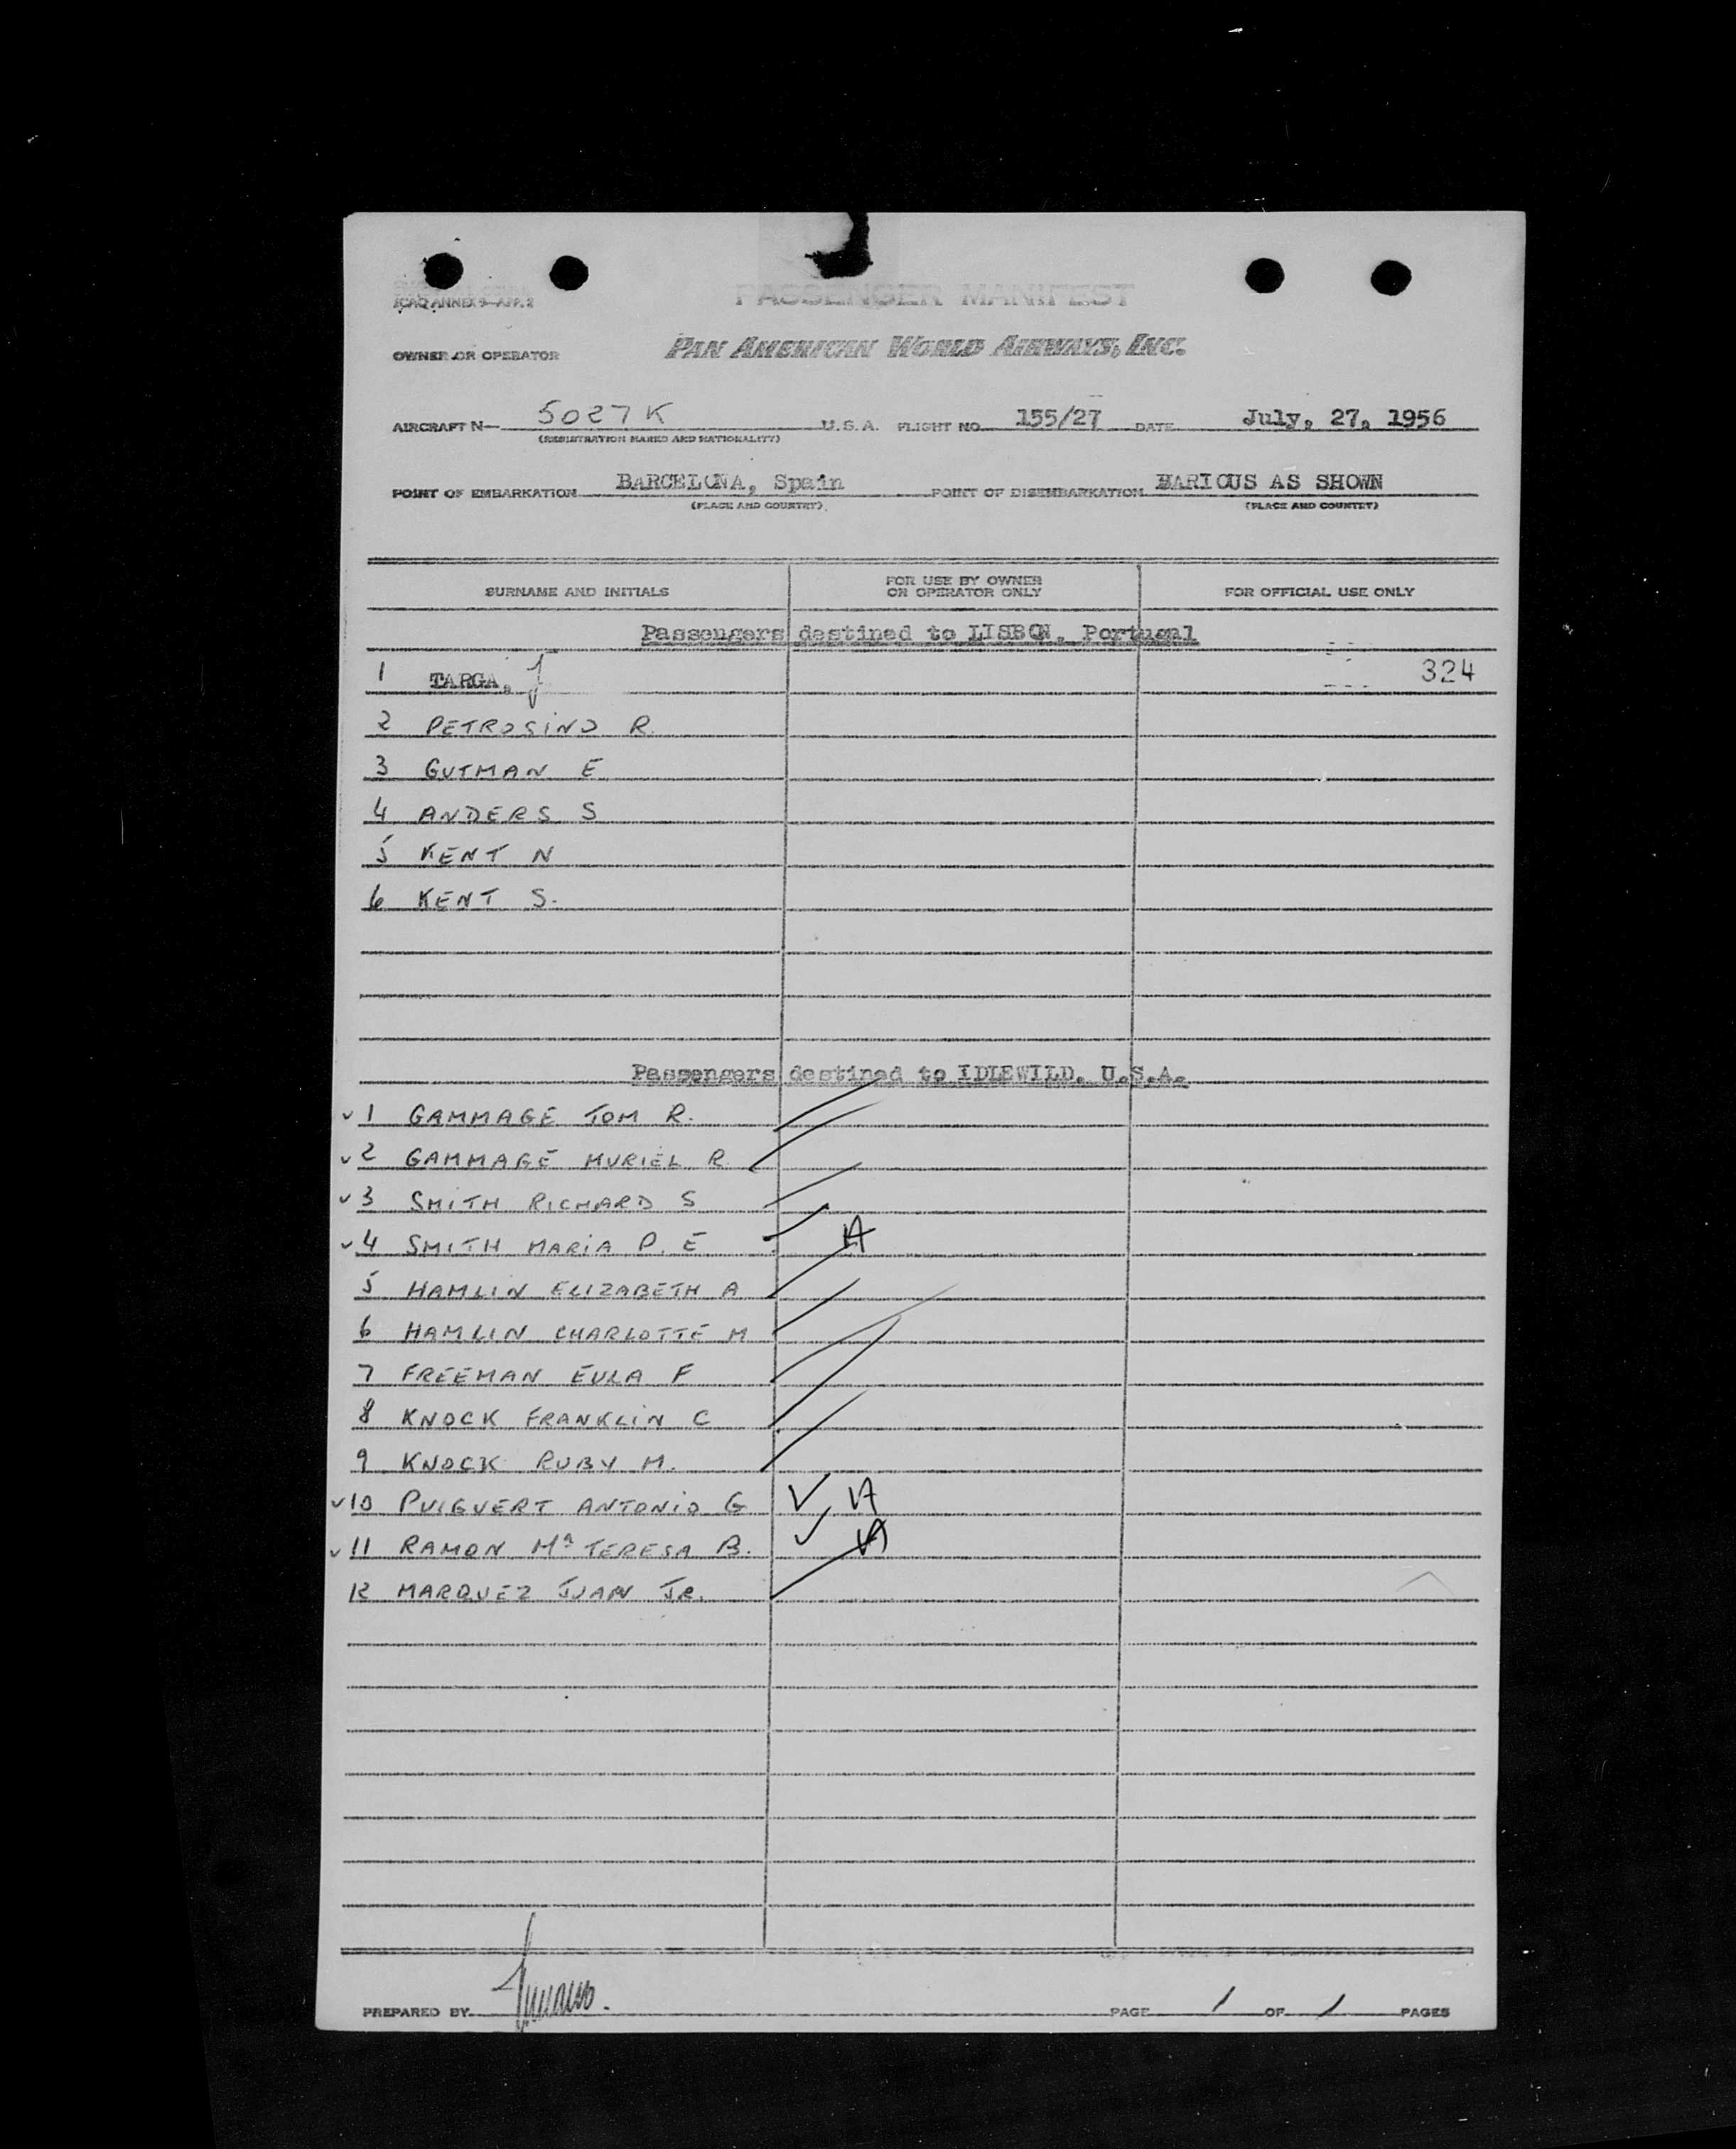 ICAO ANNEX 9—APP. 2
PASSENGER MANIFEST
OWNER OR OPERATOR PAN AMERICAN WORLD AIRWAYS, INC.
AIRCRAFT N— 5027K U.S.A. FLIGHT NO. 155/27 DATE July, 27, 1956
(REGISTRATION MARKS AND NATIONALITY)
POINT OF EMBARKATION BARCELONA, Spain POINT OF DISEMBARKATION HARIOUS AS SHOWN
(PLACE AND COUNTRY) (PLACE AND COUNTRY)
SURNAME AND INITIALS FOR USE BY OWNER OR OPERATOR ONLY FOR OFFICIAL USE ONLY
Passengers destined to LISBON. Portugal
1 TARGA, J 324
2 PETROSINO R.
3 GUTMAN E
4 ANDERS S
5 KENT N
6 KENT S.
Passengers destined to IDLEWILD. U.S.A.
✓ 1 GAMMAGE TOM R.
✓ 2 GAMMAGE MURIEL R.
✓ 3 SMITH RICHARD S
✓ 4 SMITH MARIA P. E A
5 HAMLIN ELIZABETH A
6 HAMLIN CHARLOTTE M
7 FREEMAN EULA F
8 KNOCK FRANKLIN C
9 KNOCK RUBY M.
✓ 10 PUIGVERT ANTONIO G ✓ A
✓ 11 RAMON Mª TERESA B. ✓ A
12 MARQUEZ JUAN JR.
PREPARED BY PAGE 1 OF 1 PAGES